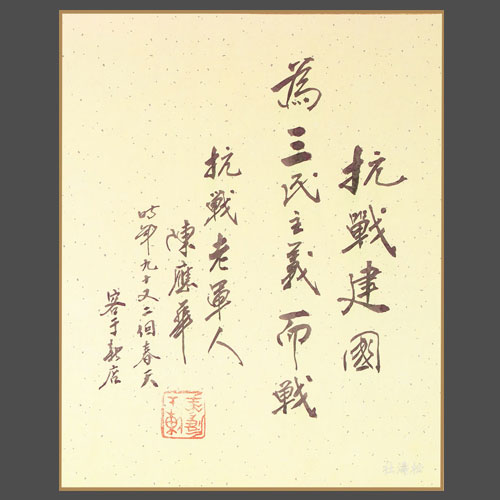 抗戰建國
為三民主義而戰
抗戰老軍人
陳應華
時年九十又二個春天
客于新店